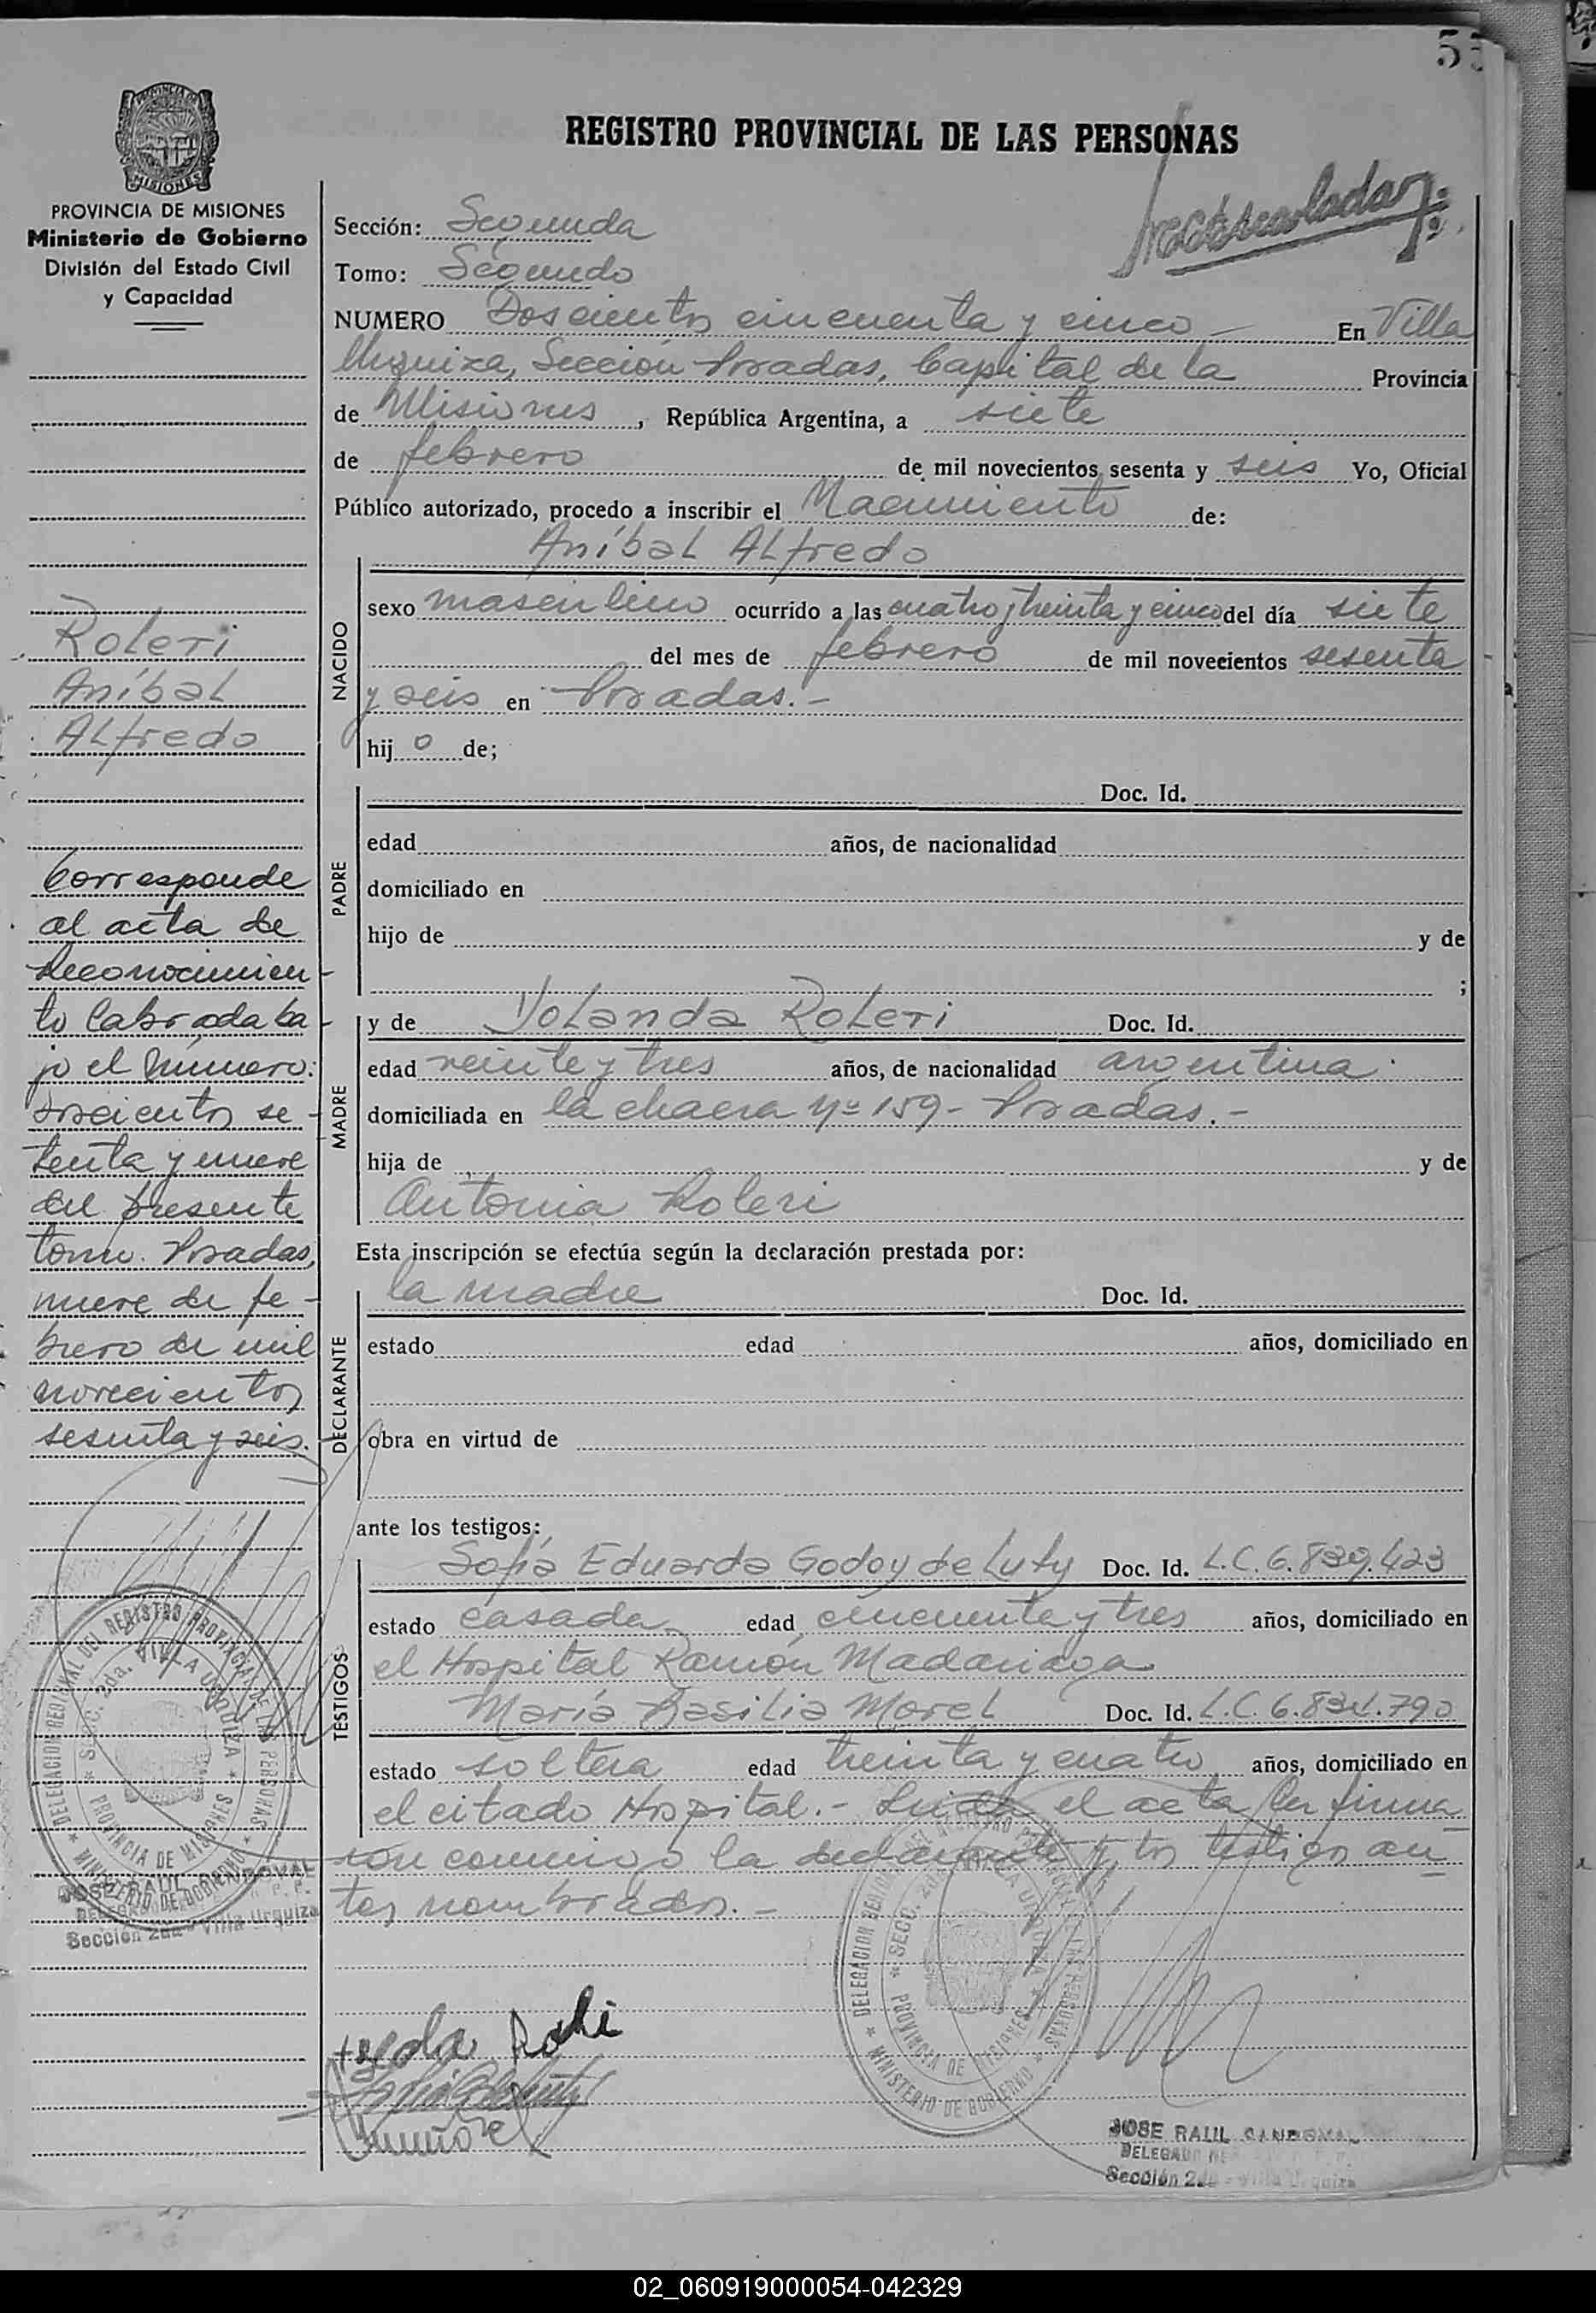 55
REGISTRO PROVINCIAL DE LAS PERSONAS
PROVINCIA DE MISIONES
Ministerio de Gobierno
División del Estado Civil
y Capacidad
Sección: Segunda
Tomo: Segundo
NUMERO Doscientos cincuenta y cinco — En Villa
Urquiza, Sección Posadas, Capital de la Provincia
de Misiones, República Argentina, a siete
de febrero de mil novecientos sesenta y seis Yo, Oficial
Público autorizado, procedo a inscribir el Nacimiento de:
Aníbal Alfredo
NACIDO
sexo masculino ocurrido a las cuatro y treinta y cinco del día siete
del mes de febrero de mil novecientos sesenta
y seis en Posadas.-
hijo de;
PADRE
Doc. Id.
edad años, de nacionalidad
domiciliado en
hijo de y de
;
MADRE
y de Yolanda Roleri Doc. Id.
edad veinte y tres años, de nacionalidad argentina
domiciliada en la chacra Nº 159- Posadas.-
hija de y de
Antonia Roleri
Esta inscripción se efectúa según la declaración prestada por:
DECLARANTE
la madre Doc. Id.
estado edad años, domiciliado en
obra en virtud de
ante los testigos:
TESTIGOS
Sofía Eduarda Godoy de Luty Doc. Id. L.C. 6.839.423
estado casada edad cincuenta y tres años, domiciliado en
el Hospital Ramón Madariaga
María Basilia Morel Doc. Id. L.C. 6.834.790
estado soltera edad treinta y cuatro años, domiciliado en
el citado Hospital.- Leída el acta la firma
ron conmigo la declarante y los testigos an
tes nombrados.-
Roleri
Aníbal
Alfredo
Corresponde
al acta de
Reconocimien
to labrada ba
jo el número:
doscientos se
tenta y nueve
del presente
tomo. Posadas,
nueve de fe-
brero de mil
novecientos
sesenta y seis.
DELEGACION REGIONAL DEL REGISTRO PROVINCIAL DE LAS PERSONAS
SECC. 2da. VILLA URQUIZA
PROVINCIA DE MISIONES
MINISTERIO DE GOBIERNO
JOSE RAUL SANDOVAL
Sección 2da - Villa Urquiza
DELEGACION REGIONAL DEL REGISTRO PROVINCIAL DE LAS PERSONAS
SECC. 2da. VILLA URQUIZA
PROVINCIA DE MISIONES
MINISTERIO DE GOBIERNO
JOSE RAUL SANDOVAL
Sección 2da - Villa Urquiza
02_060919000054-042329